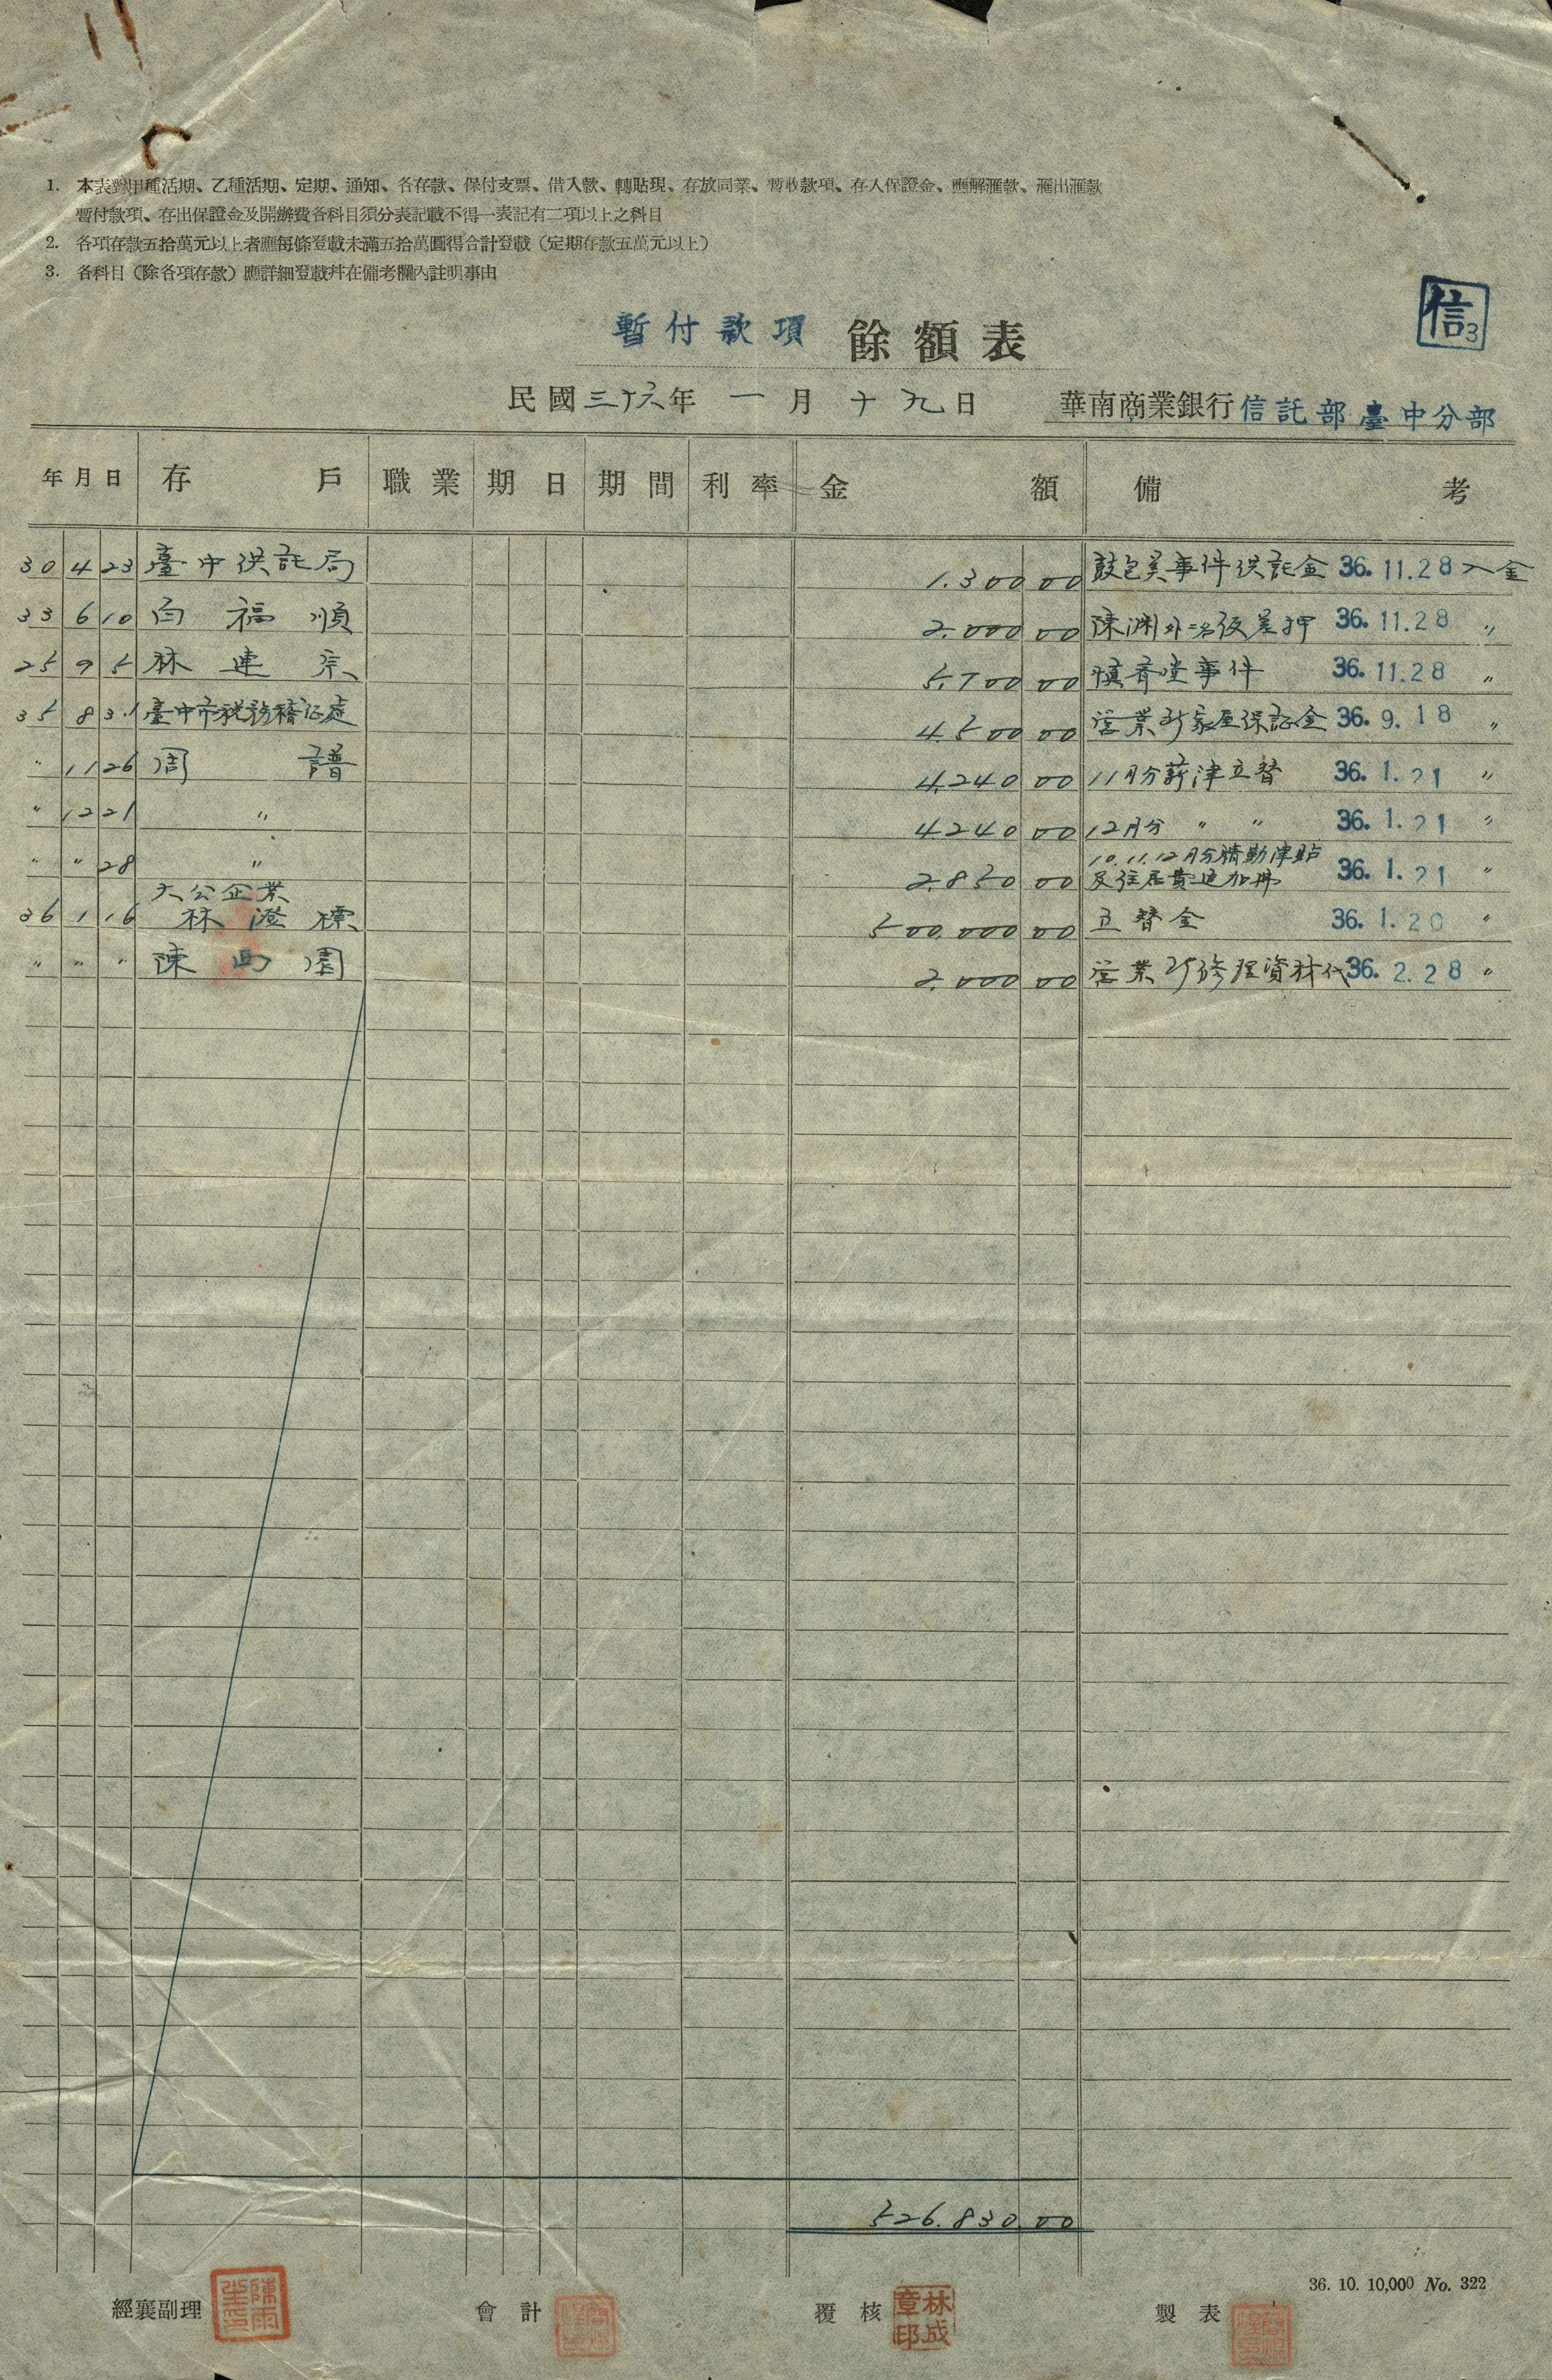 1. 本表對甲種活期、乙種活期、定期、通知、各存款、保付支票、借入款、轉貼現、存放同業、暫收款項、存入保證金、應解滙款、滙出滙款
暫付款項、存出保證金及開辦費各科目須分表記載不得一表記有二項以上之科目
2. 各項存款五拾萬元以上者應每條登載未滿五拾萬圓得合計登載（定期存款五萬元以上）
3. 各科目（除各項存款）應詳細登載幷在備考欄內註明事由
信3
暫付款項 餘額表
民國三十六年 一月 十九日 華南商業銀行信託部臺中分部
年月日 存戶 職業 期日 期間 利率 金額 備考
30 4 23 臺中供託局 1.300 00 事件供託金 36.11.28 入金
33 6 10 白福順 2.000 00 陳渊外 差押 36.11.28 〃
25 9 5 林連宗 5.700 00 慎齋堂事件 36.11.28 〃
35 8 31 臺中市税務稽征處 4.500 00 営業所家屋保証金 36.9.18 〃
〃 11 26 周譜 4.240 00 11月分薪津立替 36.1.21 〃
〃 12 21 〃 4.240 00 12月分 〃 〃 36.1.21 〃
〃 〃 28 〃 2.850 00 10.11.12月分精勤津貼
及住居費追加 36.1.21 〃
大公企業
36 1 16 林澄標 500.000 00 立替金 36.1.20 〃
〃 〃 〃 陳 園 2.000 00 営業所修理資材代 36.2.28 〃
526.830.00
36. 10. 10,000 No. 322
經襄副理 陳雨 會計 覆核 林成章印 製表